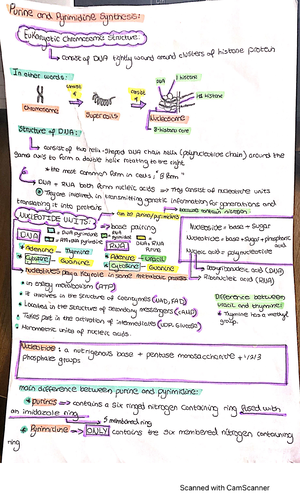 Purine and Pyrimidine Synthesis:
Eukaryotic Chromosome Structure:
consist of DNA tightly wound around clusters of histone protein
In other words:
consist of
consist of
DNA
histone
H1 histone
chromosome
supercoils
Nucleosome
8-histone core
Structure of DNA:
consist of two helix-shaped DNA chain helix (polynucleotide chain) around the
same axis to form a double helix rotating to the right.
the most common form in cells, "B form"
DNA + RNA both form nucleic acids => They consist of nucleotide units
They're involved in transmitting genetic information for generations and
translating it into proteins
NUCLEOTIDE UNITS:
DNA
base pairing
RNA
DNA pyrimidine
RNA pyrimidine
DNA + RNA
Adenine - Thymine
Cytosine - Guanine
Adenine - Uracil
Cytosine - Guanine
Nucleoside = base + sugar
Nucleotide = base + sugar + phosphoric
acid
Nucleic acid = polynucleotide
Deoxyribonucleic acid (DNA)
Ribonucleic acid (RNA)
Nucleotides play a key role in some metabolic process
in energy metabolism (ATP)
It involves in the structure of coenzymes (NAD, FAD)
Located in the structure of secondary messengers (cAMP)
Takes part in the activation of intermediates (UDP-Glucose)
Monomeric units of nucleic acids.
Difference between
uracil and thymine?
Thymine has a methyl
group.
Nucleotide : a nitrogenous base + pentose monosaccharide + 1/2/3
phosphate groups
main difference between purine and pyrimidine:
purines => contains a six ringed nitrogen containing ring fused with
an imidazole ring
5 membered ring
Pyrimidine => ONLY contains the six membered nitrogen containing
ring
Scanned with CamScanner